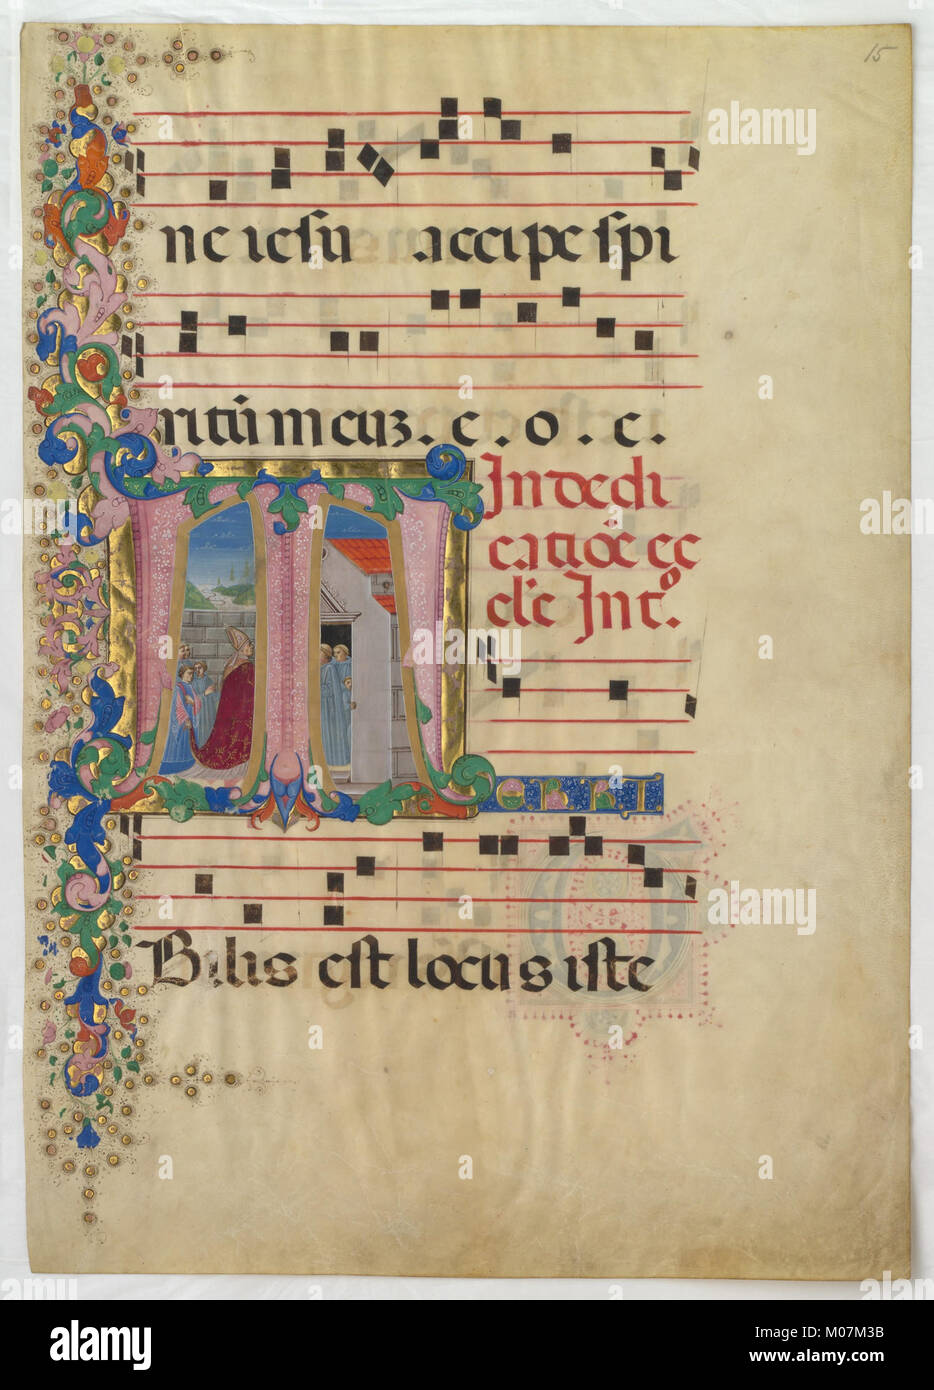 15
ne iesu accipe spi
ritū meuz . e . o . e .
In dedi
catiōe ec
cl'e Int°.
TERRI
Bilis est locus iste
alamy
alamy
Image ID: M07M3B
www.alamy.com